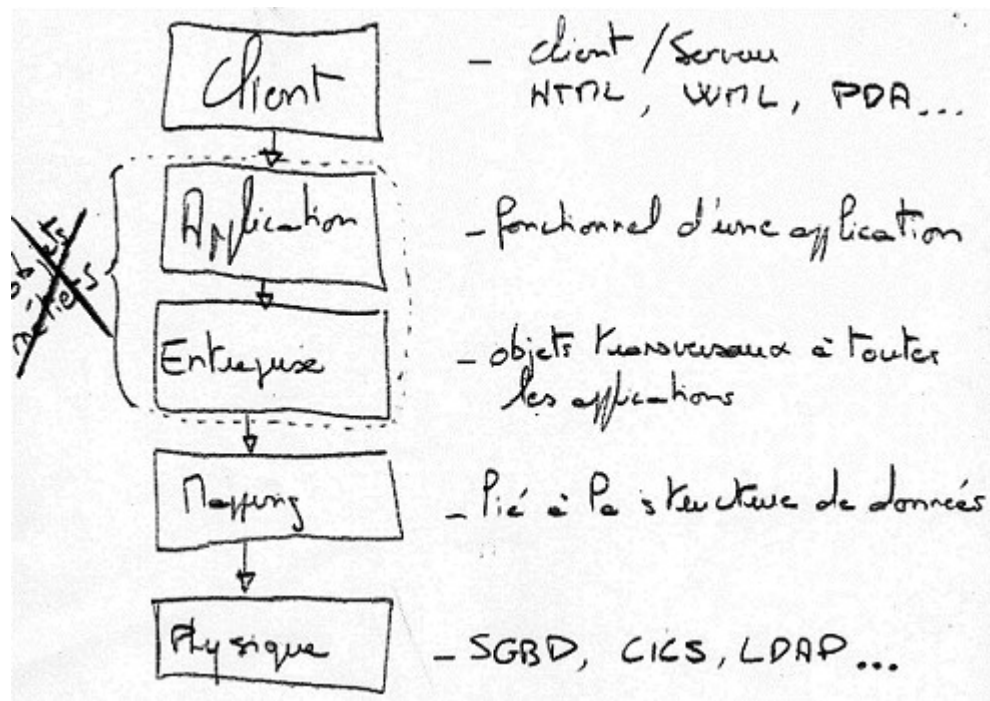 Client
- Client / Serveur
HTML, WML, PDA...
Application
- fonctionnel d'une application
Entreprise
- objets transversaux à toutes
les applications
Mapping
- lié à la structure de données
Physique
- SGBD, CICS, LDAP...